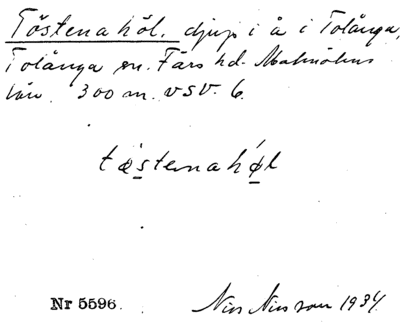 Töstenahöl. djup i å i Tolånga,
Tolånga sn. Färs hd. Malmöhus
län. 300 m. VSV. 6.
tøstenahøl
Nr 5596.
Nils Nilsson 1934